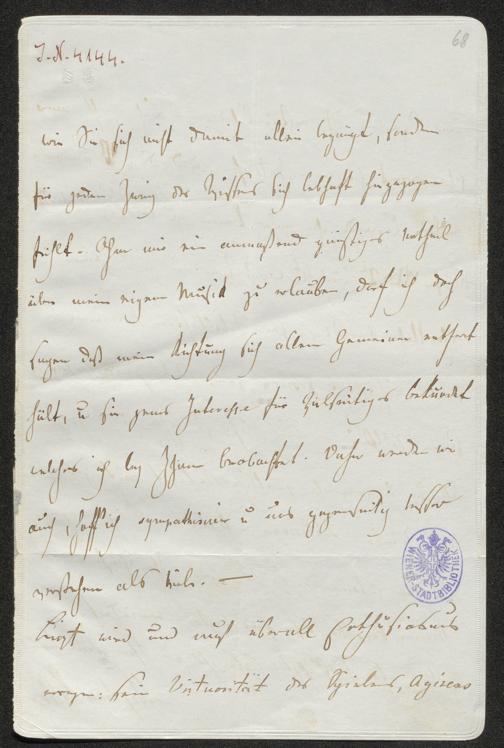 68
I.N. 4144.
wie Sie sich nicht damit allein begnügt, sondern
für jeden Zweig des Wissens sich lebhaft hingezogen
fühlt. Ohne mir ein anmaßend günstiges Urtheil
über meine eigene Musik zu erlauben, darf ich doch
sagen daß meine Richtung sich allem Gemeinen entfernt
hält, u für jenes Interesse für Vielseitiges bekundet
welches ich bey Ihnen beobachtet. Daher werden wir
auch, hoff' ich sympathisiren u uns gegenseitig besser
verstehen als viele. —
Liszt wird und muß überall Enthusiasmus
erregen: seine Virtuosität des Spielens,
WIENER STADTBIBLIOTHEK